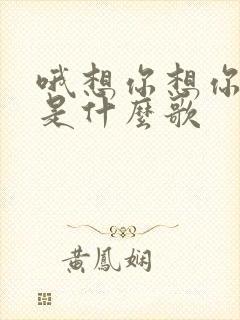 哦想你想你
是什麼歌
黃鳳娴